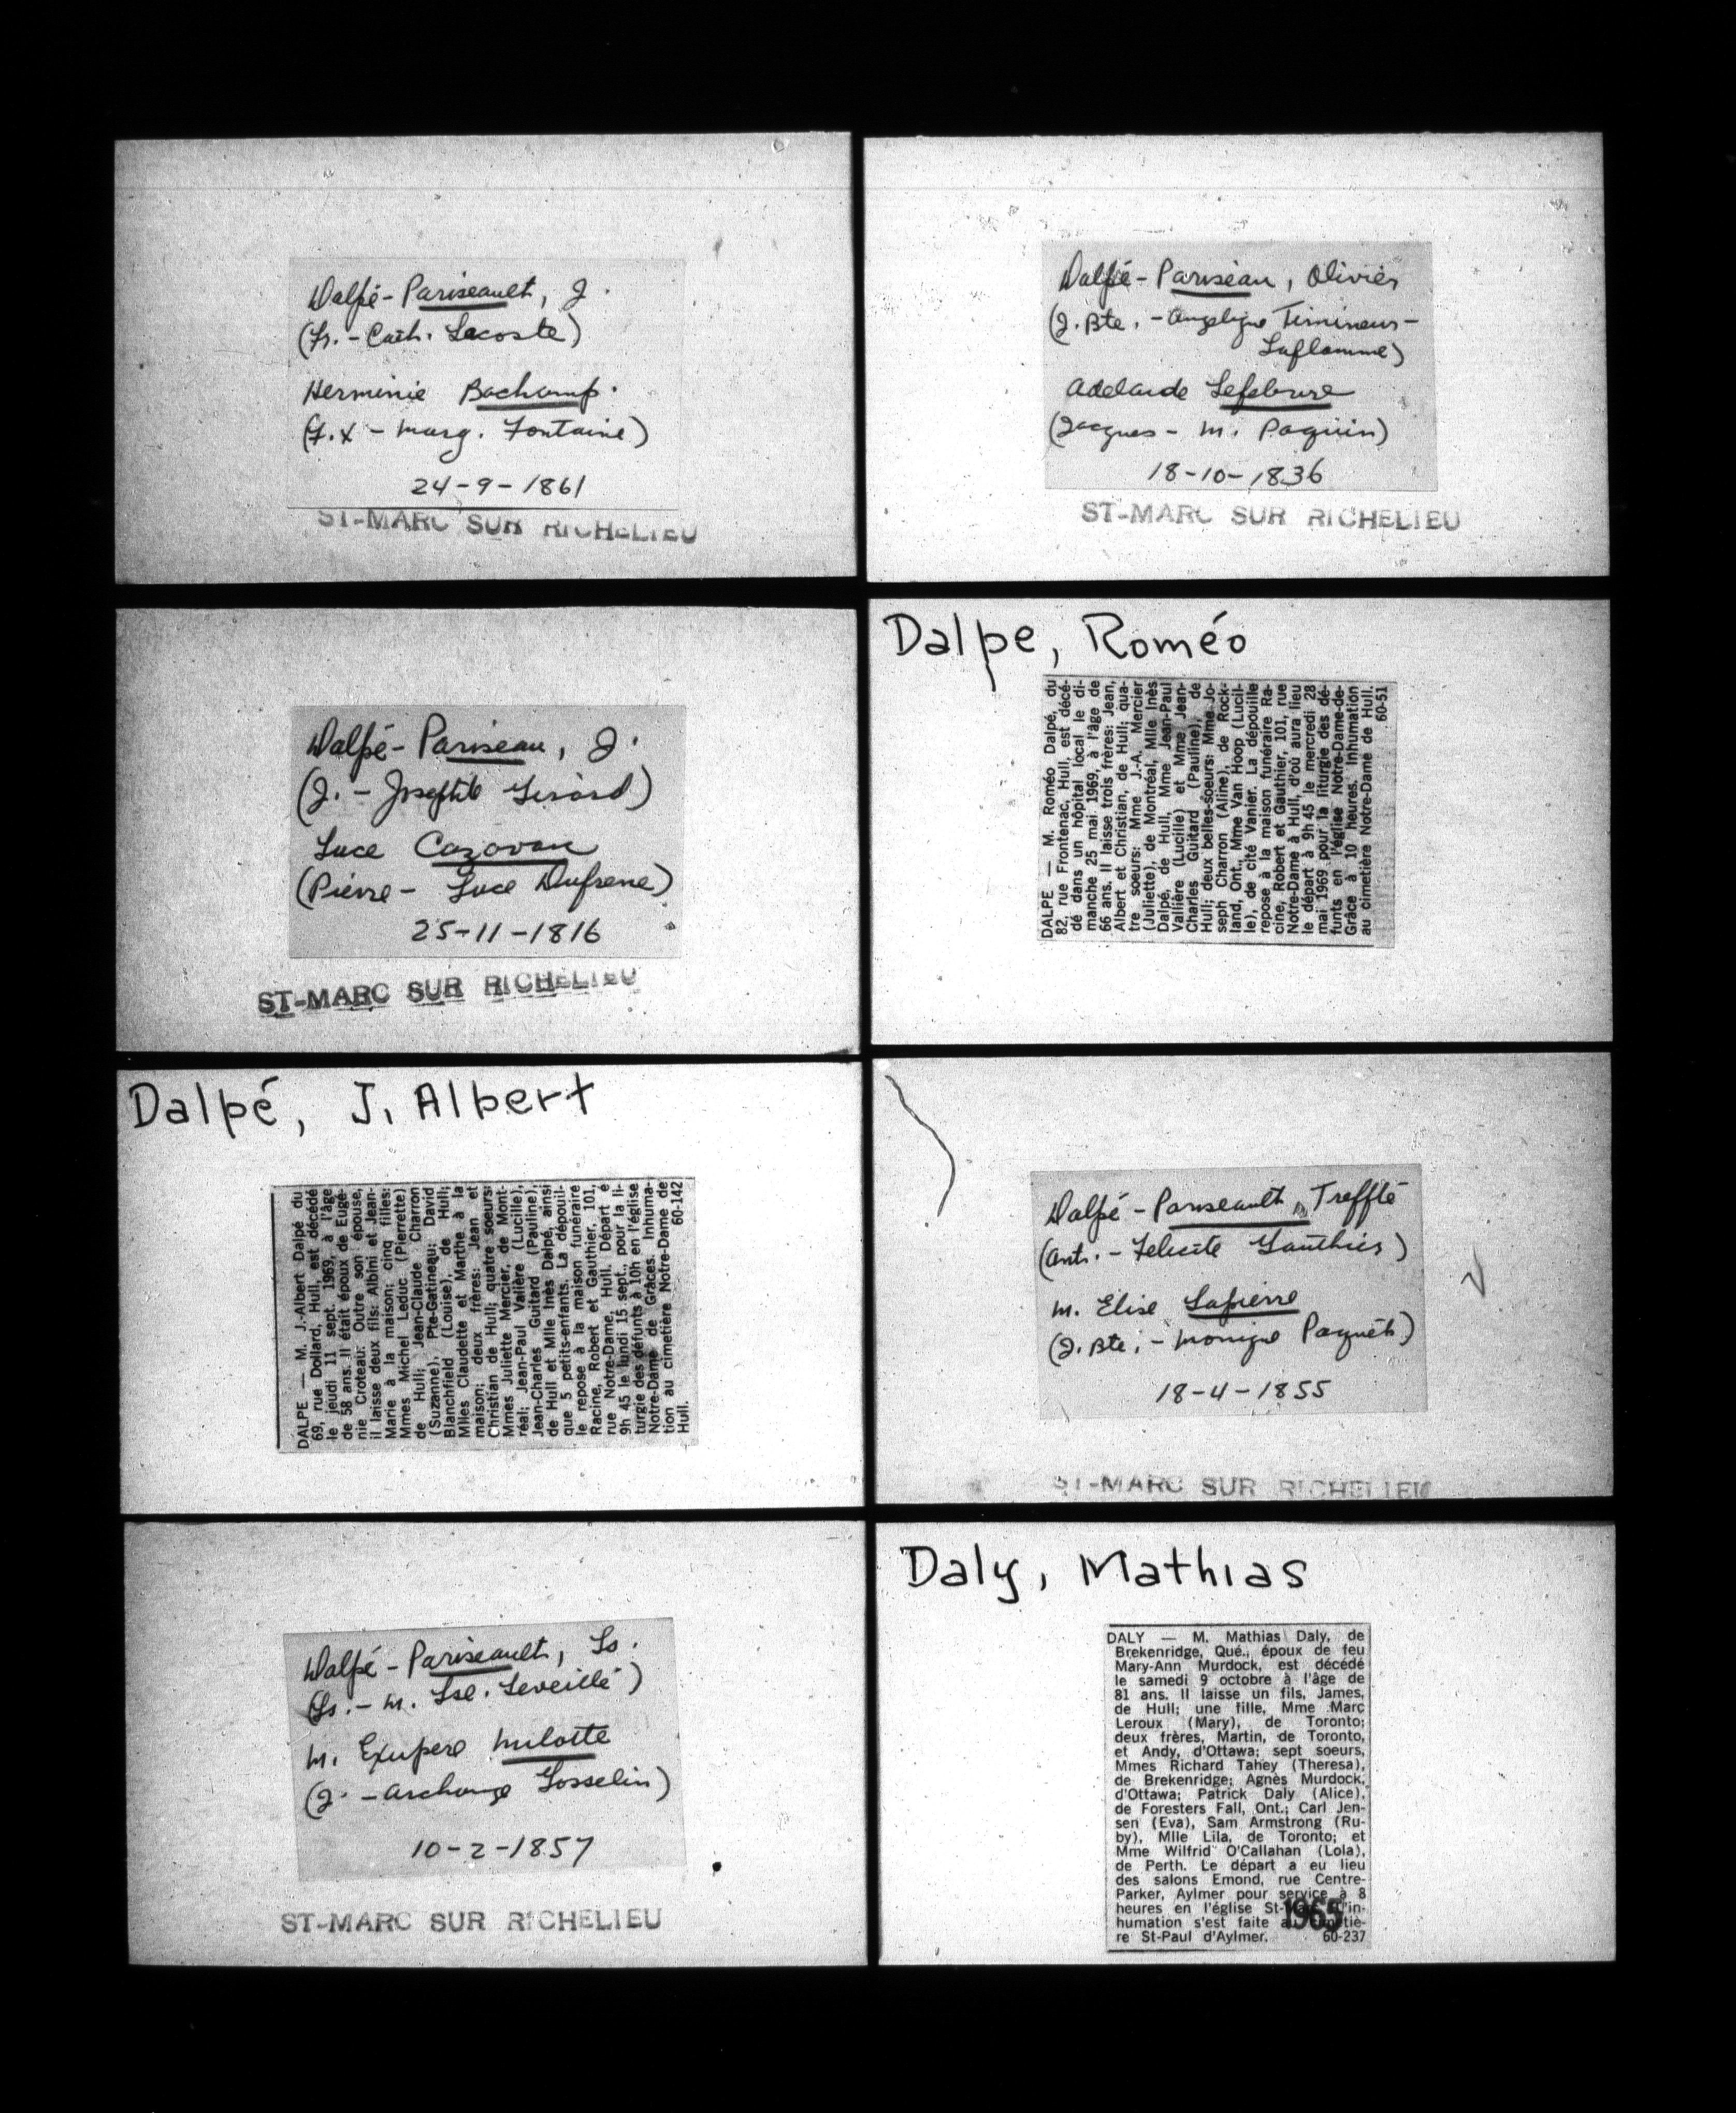 Dalpé-Pariseault, J.
(Fr. - Cath. Lacoste)
Herminie Bachamp.
(F.X - Marg. Fontaine)
24-9-1861
ST-MARC SUR RICHELIEU
Dalpé-Pariseau, Olivier
(J.Bte. - Angelique Timineur-
Laflamme)
Adelaide Lefebvre
(Jacques - M. Paquin)
18-10-1836
ST-MARC SUR RICHELIEU
Dalpé-Pariseau, J.
(J. - Josephte Girard)
Luce Cazavan
(Pierre - Luce Dufresne)
25-11-1816
ST-MARC SUR RICHELIEU
Dalpe, Roméo
DALPE — M. Roméo Dalpé, du
82, rue Frontenac, Hull, est décé-
dé dans un hôpital local le di-
manche 25 mai 1969, à l'âge de
66 ans. Il laisse trois frères: Jean,
Albert et Christian, de Hull; qua-
tre soeurs: Mme J.-A. Mercier
(Juliette), de Montréal, Mlle Inès
Dalpé, de Hull, Mme Jean-Paul
Vallière (Lucille) et Mme Jean-
Charles Guitard (Pauline), de
Hull; deux belles-soeurs: Mme Jo-
seph Charron (Aline), de Rock-
land, Ont., Mme Van Hoop (Lucil-
le), de cité Vanier. La dépouille
repose à la maison funéraire Ra-
cine, Robert et Gauthier, 101, rue
Notre-Dame à Hull, d'où aura lieu
le départ à 9h 45 le mercredi 28
mai 1969 pour la liturgie des dé-
funts en l'église Notre-Dame-de-
Grâce à 10 heures. Inhumation
au cimetière Notre-Dame de Hull.
60-51
Dalpé, J. Albert
DALPE — M. J.-Albert Dalpé du
69, rue Dollard, Hull, est décédé
le jeudi 11 sept. 1969, à l'âge
de 58 ans. Il était époux de Eugé-
nie Croteau. Outre son épouse,
il laisse deux fils: Albini et Jean-
Marie à la maison; cinq filles:
Mmes Michel Leduc (Pierrette)
de Hull; Jean-Claude Charron
(Suzanne), Pte-Gatineau; David
Blanchfield (Louise), de Hull;
Mlles Claudette et Marthe à la
maison; deux frères: Jean et
Christian de Hull; quatre soeurs:
Mmes Juliette Mercier, de Mont-
réal; Jean-Paul Valière (Lucille),
Jean-Charles Guitard (Pauline),
de Hull et Mlle Inès Dalpé, ainsi
que 5 petits-enfants. La dépouil-
le repose à la maison funéraire
Racine, Robert et Gauthier, 101,
rue Notre-Dame, Hull. Départ é
9h 45 le lundi 15 sept., pour la li-
turgie des défunts à 10h en l'église
Notre-Dame de Grâces. Inhuma-
tion au cimetière Notre-Dame de
Hull. 60-142
Dalpé-Pariseault, Trefflé
(Ant. - Felicite Gauthier)
M. Elise Lapierre
(J.Bte. - Monique Paquet)
18-4-1855
ST-MARC SUR RICHELIEU
Dalpé-Pariseault, Ls.
(Ls. - M. Lse. Leveillé)
M. Exupere Milotte
(J. - Archange Gosselin)
10-2-1857
ST-MARC SUR RICHELIEU
Daly, Mathias
DALY — M. Mathias Daly, de
Brekenridge, Qué., époux de feu
Mary-Ann Murdock, est décédé
le samedi 9 octobre à l'âge de
81 ans. Il laisse un fils, James,
de Hull; une fille, Mme Marc
Leroux (Mary), de Toronto;
deux frères, Martin, de Toronto,
et Andy, d'Ottawa; sept soeurs,
Mmes Richard Tahey (Theresa),
de Brekenridge; Agnès Murdock,
d'Ottawa; Patrick Daly (Alice),
de Foresters Fall, Ont.; Carl Jen-
sen (Eva), Sam Armstrong (Ru-
by), Mlle Lila, de Toronto; et
Mme Wilfrid O'Callahan (Lola),
de Perth. Le départ a eu lieu
des salons Emond, rue Centre-
Parker, Aylmer pour service à 8
heures en l'église l'in-
humation s'est faite au cimetiè-
re St-Paul d'Aylmer. 60-237
1965